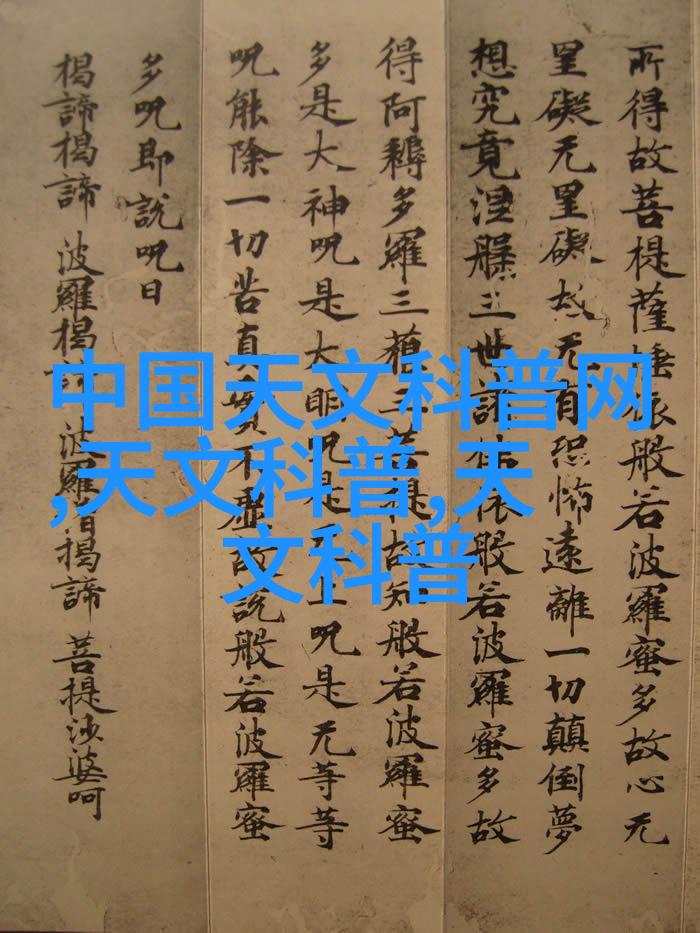 所得故菩提薩埵依般若波羅蜜多故心无
罣礙无罣礙故无有恐怖遠離一切顛倒夢
想究竟涅槃三世諸佛依般若波羅蜜多故
得阿耨多羅三藐三菩提故知般若波羅蜜
多是大神呪是大明呪是无上呪是无等等
呪能除一切苦真實不虛故說般若波羅蜜
多呪即說呪曰
揭諦揭諦 波羅揭諦 波羅僧揭諦 菩提沙婆呵
中国天文科普网
,天文科普,天
文科普